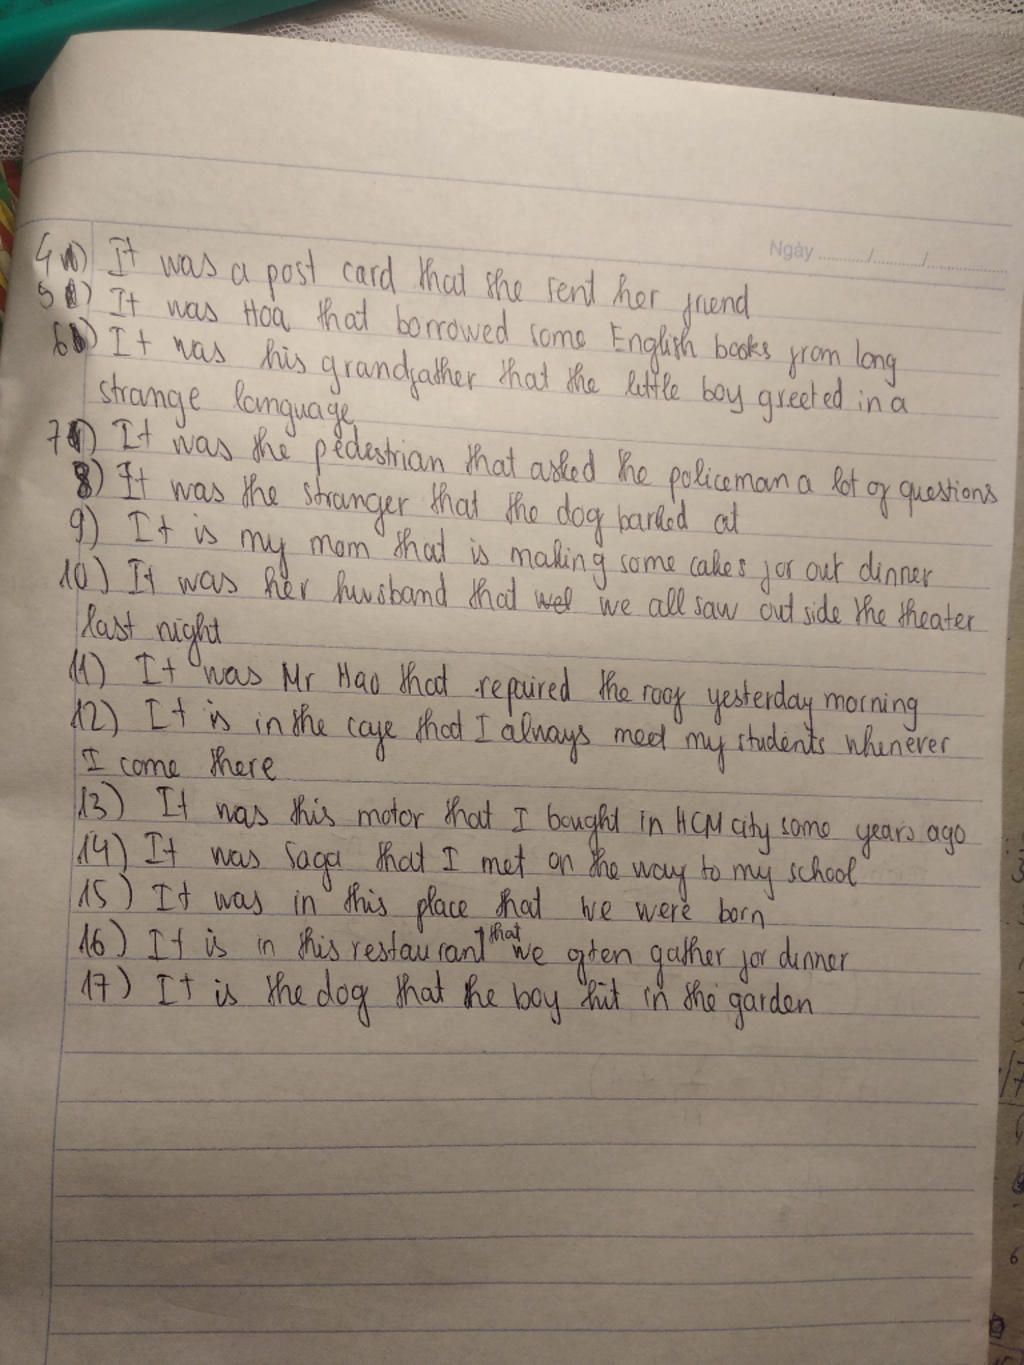 Ngày ......./......./...............
4) It was a post card that she sent her friend
5) It was Hoa that borrowed some English books from long
6) It was his grandfather that the little boy greeted in a
strange language
7) It was the pedestrian that asked the policeman a lot of questions
8) It was the stranger that the dog barked at
9) It is my mom that is making some cakes for out dinner
10) It was her huusband that we all saw out side the theater
last night
11) It was Mr Hao that repaired the roof yesterday morning
12) It is in the cafe that I always meet my students whenever
I come there
13) It was this motor that I bought in HCM city some years ago
14) It was Saga that I met on the way to my school
15) It was in this place that we were born
16) It is in this restaurant that we often gather for dinner
17) It is the dog that the boy hit in the garden